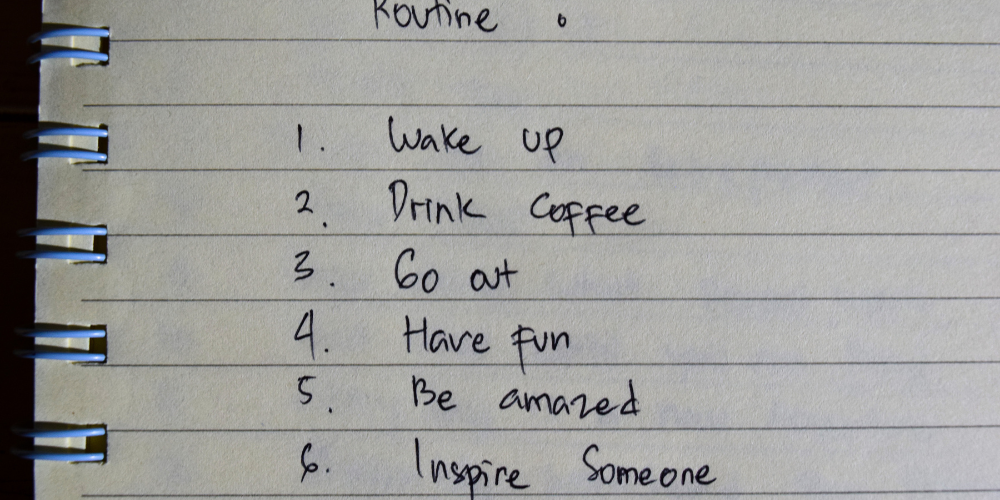 Routine
1. Wake up
2. Drink Coffee
3. Go out
4. Have fun
5. Be amazed
6. Inspire Someone